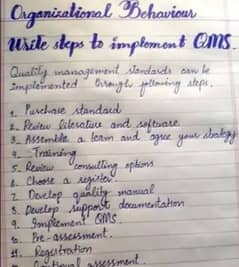 Organizational Behaviour
Write steps to implement QMS.
Quality management standards can be
implemented through following steps.
1. Purchase standard
2. Review literature and software
3. Assemble a team and agree your strategy
4. Training
5. Review consulting options
6. Choose a register
7. Develop quality manual
8. Develop support documentation
9. Implement QMS
10. Pre-assessment.
11. Registration
assessment.